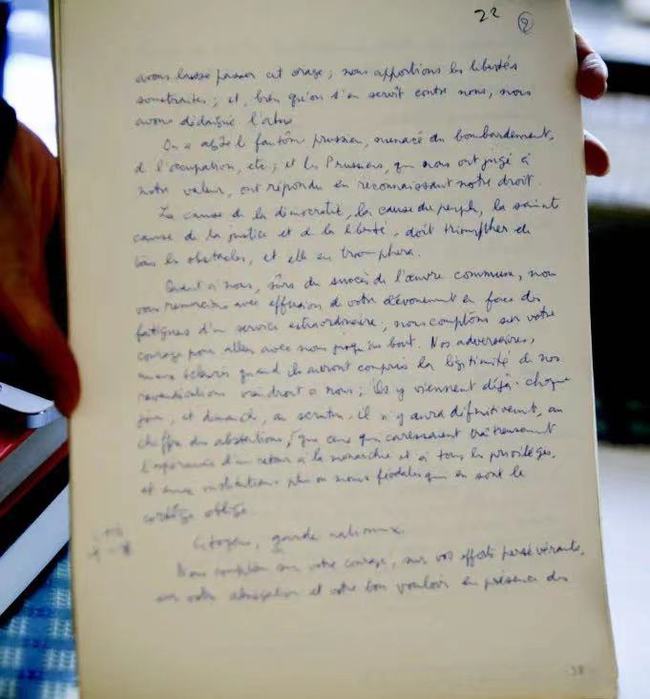 22 2
avons laissé passer cet orage; nous apportions les libertés
soustraites; et, bien qu'on s'en servît contre nous, nous
avons dédaigné l'abus
On a agité le fantôme prussien, menacé du bombardement,
de l'occupation, etc; et les Prussiens, qui nous ont jugé à
notre valeur, ont répondu en reconnaissant notre droit.
La cause de la démocratie, la cause du peuple, la sainte
cause de la justice et de la liberté, doit triompher de
tous les obstacles, et elle en triomphera.
Quant à nous, sûrs du succès de l'œuvre commune, nous
vous remercions avec effusion de votre dévouement en face des
fatigues d'un service extraordinaire; nous comptons sur votre
courage pour aller avec nous jusqu'au bout. Nos adversaires,
mieux éclairés quand ils auront compris la légitimité de nos
revendications viendront à nous; ils y viennent déjà chaque
jour, et dimanche, au scrutin il n'y aura définitivement, au
chiffre des abstentions, que ceux qui caressent traîtreusement
l'espérance d'un retour à la monarchie et à tous les privilèges,
et aux institutions plus ou moins féodales qui en sont le
cortège obligé.
Citoyens, gardes nationaux,
Nous comptons sur votre courage, sur vos efforts persévérants,
sur votre abnégation et votre bon vouloir en présence des